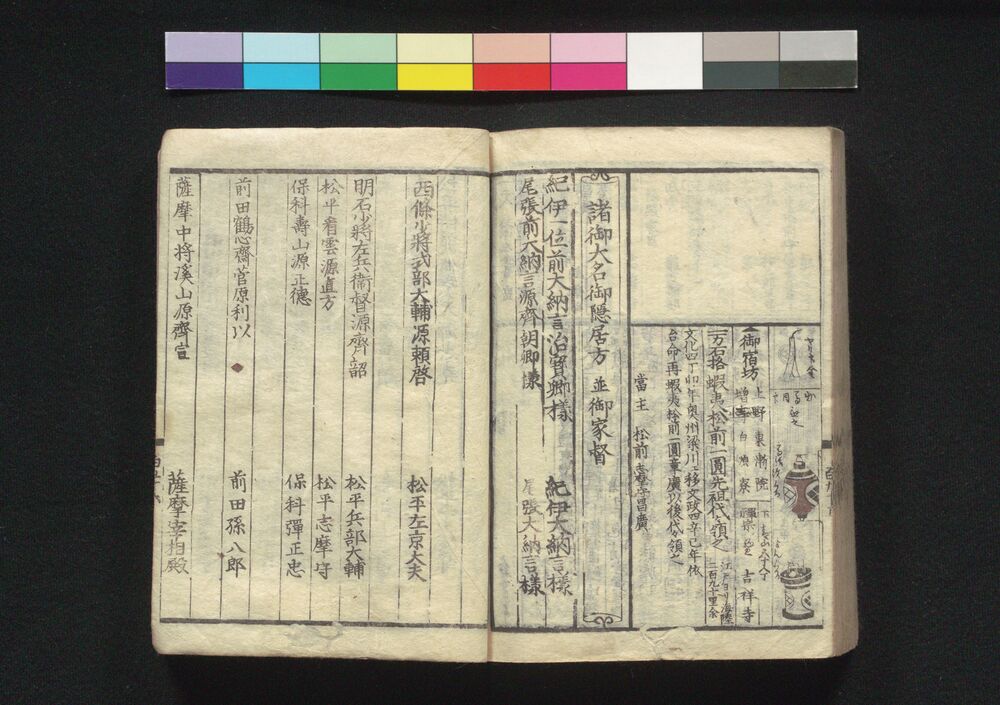 御宿坊
上野東漸院
吉祥寺
一万石格蝦夷松前一圓先祖代々領之
江戸ヨリ海陸二百九十里余
文化四丁卯年奥州梁川工移文政四辛巳年依
台命再蝦夷松前一圓章廣以後代々領之
當主 松前志摩守昌廣
諸御大名御隠居方並御家督
紀伊一位前大納言治寶卿様 紀伊大納言様
尾張前大納言源齊朝卿様 尾張大納言様
西條少将式部大輔源頼啓 松平左京大夫
明石少将左兵衛督源齊韶 松平兵部大輔
松平看雲源直方 松平志摩守
保科壽山源正徳 保科彈正忠
前田鶴心齋菅原利以 前田孫八郎
薩摩中将溪山源齊宣 薩摩宰相殿